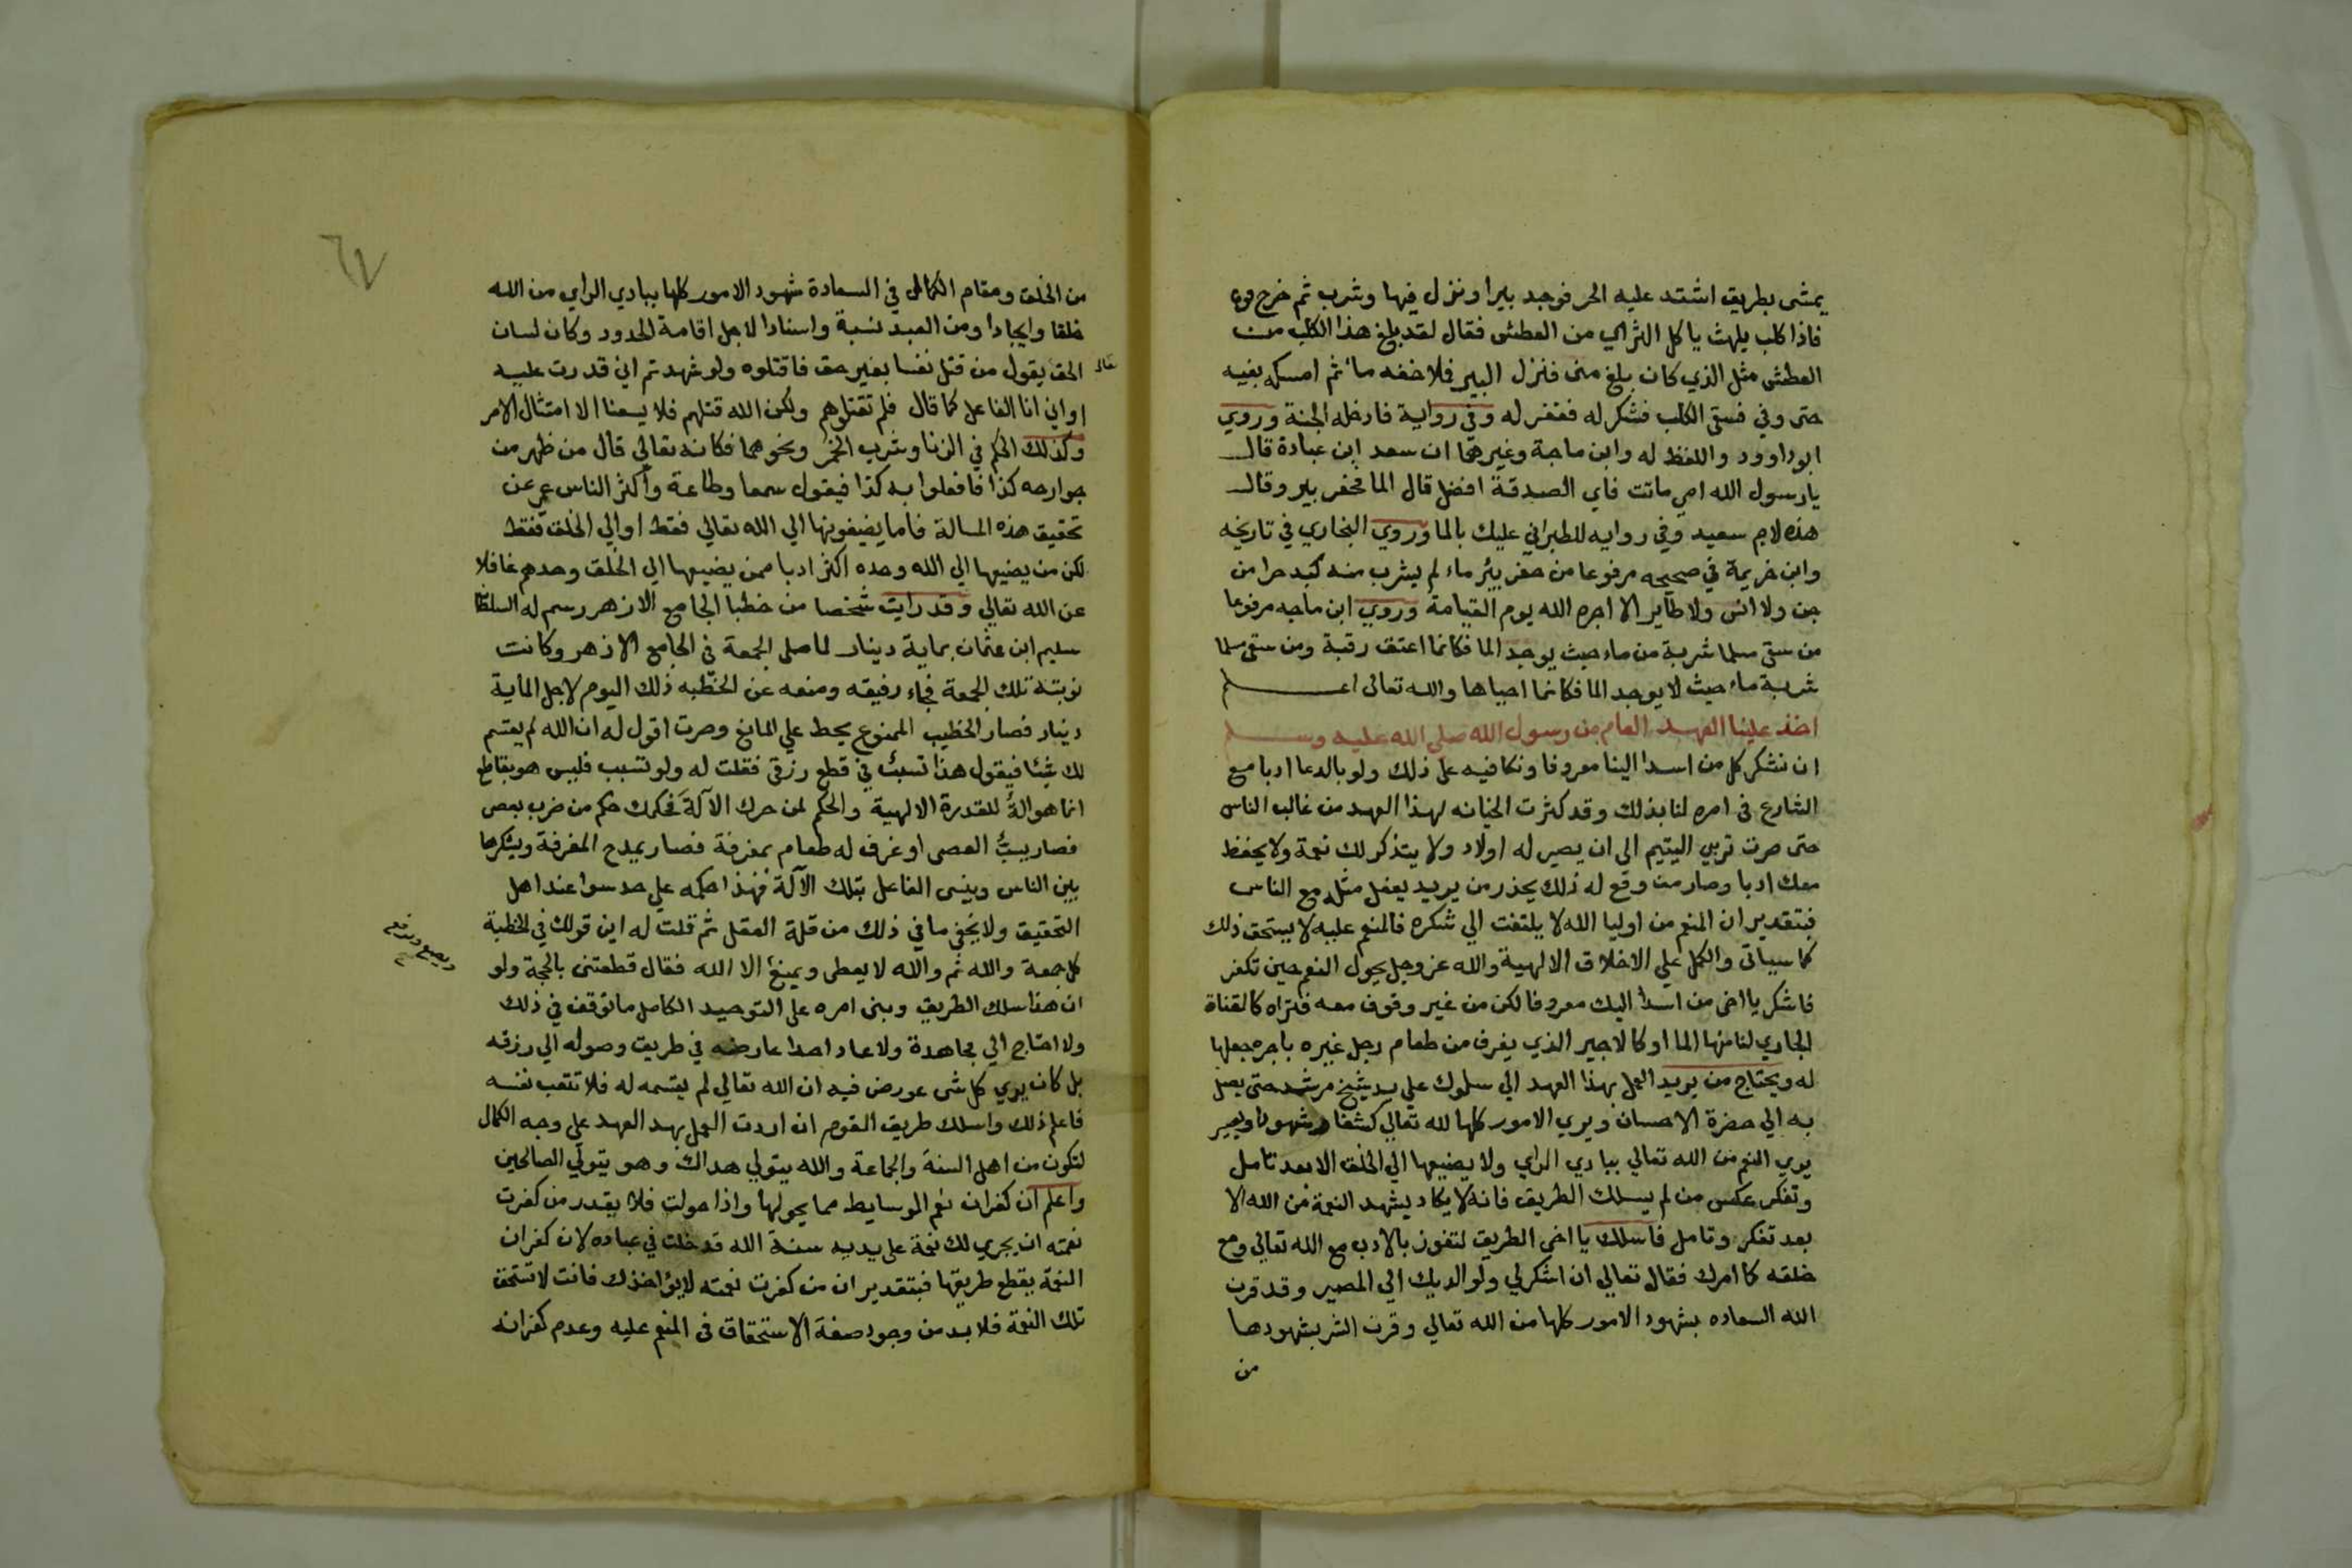 يمشي بطريق اشتد عليه الحر فوجد بيرا ونزل فيها وشرب ثم خرج
فاذا كلب يلهث ياكل الثراي من العطش فقال لقد بلغ هذا الكلب من
العطش مثل الذي كان بلغ مني فنزل البير فملا خفه ماء ثم امسكه بفيه
حتى وفي فسقى الكلب فشكر له فغفر له وفي رواية فادخله الجنة وروي
ابو داوود واللفظ له وابن ماجة وغيرهما ان سعد ابن عبادة قال
يا رسول الله امي ماتت فاي الصدقة افضل قال الما فحفر بير وقال
هذه لام سعيد وفي روايه للطبراني عليك بالما وروي البخاري في تاريخه
وابن خزيمة في صحيحه مرفوعا من حفر بئر ماء لم يشرب منه كبد حرا من
جن ولا انس ولا طاير الا اجره الله يوم القيامة وروي ابن ماجه مرفوعا
من سقى مسلما شربة من ماء حيث يوجد الما فكانما اعتق رقبة ومن سقى مسلما
شربة ماء حيث لا يوجد الما فكانما احياها والله تعالى اعلم
اخذ علينا العهد العام من رسول الله صلي الله عليه وسلم
ان نشكر كل من اسدا الينا معروفا ونكافيه على ذلك ولو بالدعا ادبا مع
الشارع في امره لنا بذلك وقد كثرت الخيانه لهذا العهد من غالب الناس
حتى صرت تربي اليتيم الى ان يصير له اولاد ولا يتذكر لك نعمة ولا يحفظ
معك ادبا وصار من وقع له ذلك يحذر من يريد يفعل مثله مع الناس
فبتقدير ان المنعم من اوليا الله لا يلتفت الي شكره فالمنعم عليه لا يستحق ذلك
كما سياتى والكمل علي الاخلاق الالهية والله عز وجل يحول النعم حين تكفر
فاشكر يا اخي من اسدا اليك معروفا لكن من غير وقوف معه فتراه كالقناة
الجاري لنا منها الما او كالاجير الذي يغرف من طعام رجل غيره باجره جعلها
له ويحتاج من يريد العمل بهذا العهد الي سلوك علي يد شيخ مرشد حتى يصل
به الي حضرة الاحسان ويري الامور كلها لله تعالي كشفا وشهودا ويصير
يري النعم من الله تعالي ببادي الراي ولا يضيعها الي الخلق الا بعد تامل
وتفكر عكس من لم يسلك الطريق فانه لا يكاد يشهد النعمة من الله الا
بعد تفكر وتامل فاسلك يا اخي الطريق لتفوز بالادب مع الله تعالي ومع
خلقه كما امرك فقال تعالي ان اشكرلي ولوالديك الي المصير وقد قرن
الله السعاده بشهود الامور كلها من الله تعالي وقرن الشر بشهودها
من
من الخلق ومقام الكمال في السعادة شهود الامور كلها ببادي الراي من الله
خلقا وايجادا ومن العبد نسبة واسنادا لاجل اقامة الحدود وكان لسان
الحق يقول من قتل نفسا بغير حق فاقتلوه ولو شهدتم اني قدرت عليه
او اني انا الفاعل كما قال فلم تقتلوهم ولكن الله قتلهم فلا يسعنا الا امتثال الامر
وكذلك الحكم في الزنا وشرب الخمر ونحوهما فكانه تعالي قال من ظهر من
جوارحه كذا فافعلوا به كذا فيقول سمعا وطاعة واكثر الناس عمي عن
تحقيق هذه المسالة فاما يضيفونها الي الله تعالي فقط او الي الخلق فقط
لكن من يضيعها الي الله وحده اكثر ادبا ممن يضيعها الي الخلق وحدهم غافلا
عن الله تعالي وقد رايت شخصا من خطبا الجامع الازهر رسم له السلطان
سليم ابن عثمان بماية دينار لما صلى الجمعة في الجامع الازهر وكانت
نوبته تلك الجمعة فجاء رفيقه ومنعه عن الخطبه ذلك اليوم لاجل الماية
دينار فصار الخطيب الممنوع يحط علي المانع وصرت اقول له ان الله لم يقسم
لك شيئا فيقول هذا تسبب في قطع رزقي فقلت له ولو تسبب فليس هو بقاطع
انما هو الة للقدرة الالهية والحكم لمن حرك الآلة فحكمك حكم من ضرب بعصى
فصار يسب العصى او غرف له طعام بمغرفة فصار يمدح المغرفة ويشكرها
بين الناس وينسى الفاعل بتلك الآلة فهذا حكمه علي حد سوا عند اهل
التحقيق ولا يخفي ما في ذلك من قلة العقل ثم قلت له اين قولك في الخطبة
كل جمعة والله ثم والله لا يعطى ويمنع الا الله فقال قطعتنى بالحجة ولو
ان هذا سلك الطريق وبنى امره على التوحيد الكامل ما توقف في ذلك
ولا احتاج الي مجاهدة ولا عاد احدا عارضه في طريق وصوله الي رزقه
بل كان يري كل شى عورض فيه ان الله تعالي لم يقسمه له فلا تتعب نفسه
فاعلم ذلك واسلك طريق القوم ان اردت العمل بهد العهد علي وجه الكمال
لتكون من اهل السنة والجاعة والله يتولي هداك وهو يتولي الصالحين
واعلم ان كفران نعم الوسايط مما يحولها واذا حولت فلا يقدر من كفرت
نعمته ان يجري لك نعمة على يديه سنة الله قد خلت في عباده لان كفران
النعمة يقطع طريقها فبتقدير ان من كفرت نعمته لا يؤاخذك فانت لا تستحق
تلك النعمة فلا بد من وجود صفة الاستحقاق في المنعم عليه وعدم كفرانه